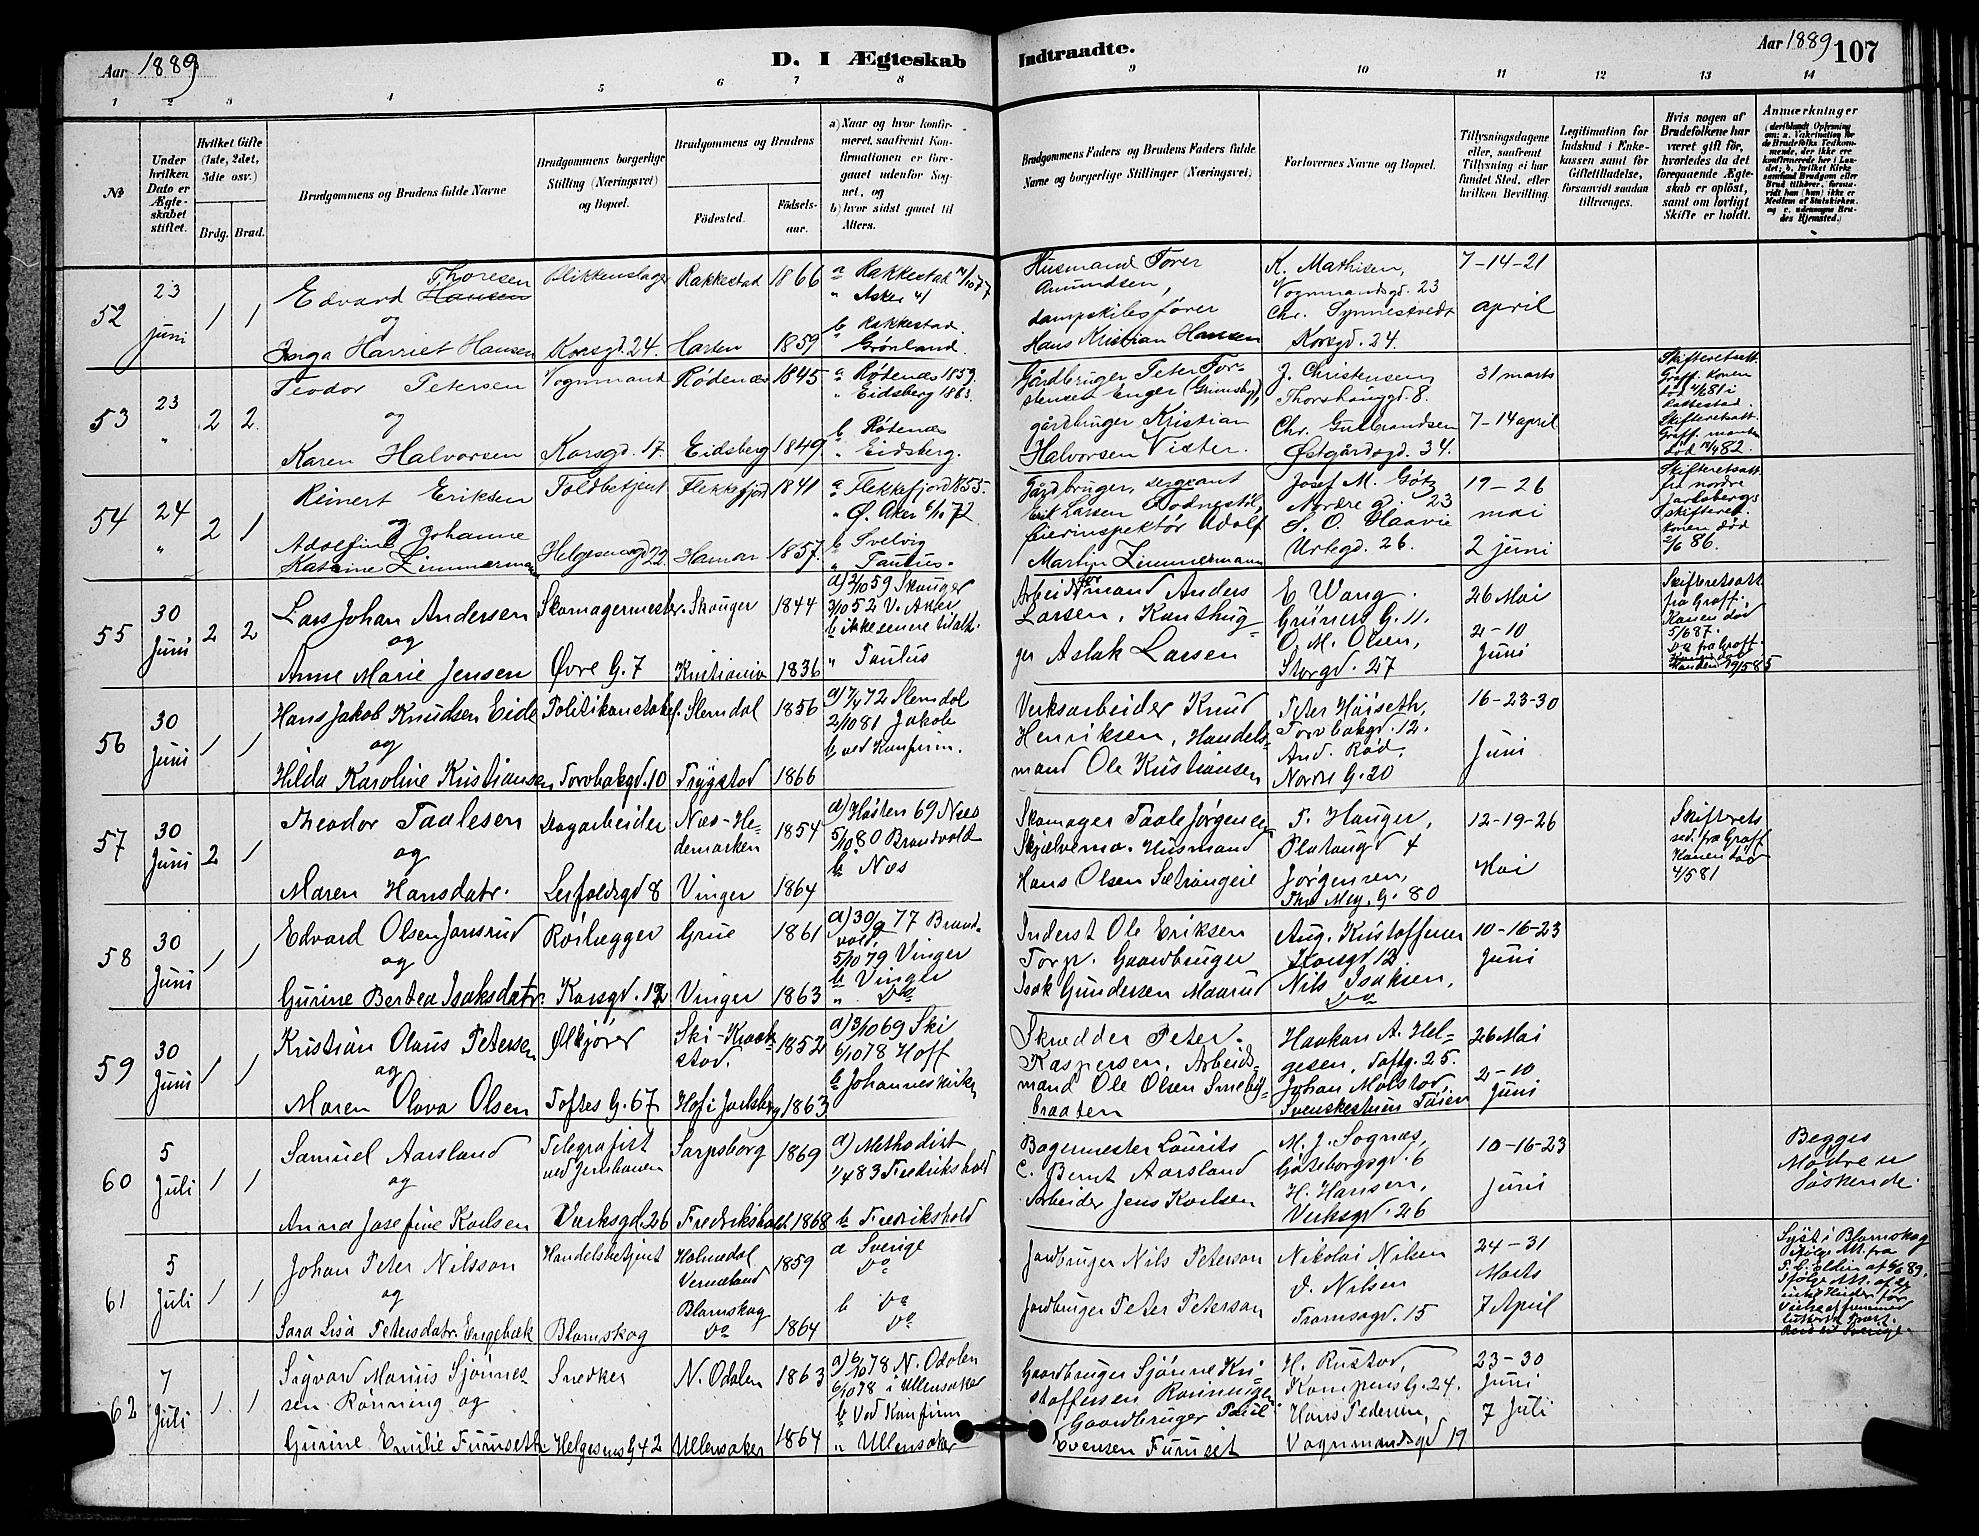 Aar 1889
D. I Ægteskab
Indtraadte.
Aar 1889 107
1 2 3 4 5 6 7 8 9 10 11 12 13 14
№
Under hvilken Dato er Ægteskabet stiftet.
Hvilket Gifte (1ste, 2det, 3die osv.)
Brdg. Brud.
Brudgommens og Brudens fulde Navne
Brudgommens borgerlige Stilling (Næringsvei) og Bopæl.
Brudgommens og Brudens
Fødested.
Fødselsaar.
a) Naar og hvor konfirmeret, saafremt Konfirmationen er foregaaet udenfor Sognet, og
b) hvor sidst gaaet til Alters.
Brudgommens Faders og Brudens Faders fulde Navne og borgerlige Stillinger (Næringsvei)
Forlovernes Navne og Bopæl.
Tillysningsdagene eller, saafremt Tillysning ei har fundet Sted, efter hvilken Bevilling.
Legitimation for Indskud i Enkekassen samt for Giftetilladelse, forsaavidt saadan tiltrænges.
Hvis nogen af Brudefolkene har været gift før, hvorledes da det foregaaende Ægteskab er opløst, samt om lovligt Skifte er holdt.
Anmærkninger
52
23 juni
1 1
Edvard Hansen Thoresen
og
Inga Harriet Hansen
Blikkenslager
Korsgd. 24.
Rakkestad 1866
1859
a Rakkestad
" Asker
b Rakkestad.
" Grønland.
Husmand Torer
Amundsen,
dampskibsfører
Hans Kristian Hansen
K. Mathisen,
Vognmandsgd. 23
Chr. Synnestvedt
Korsgd. 24.
7-14-21
april
53
23 "
2 2
Teodor Petersen
og
Karen Halvorsen
Vognmand
Korsgd. 17.
Rødenæs 1845
Eidsberg 1849
a Rødenæs 1859.
" Eidsberg 1863.
b Rødenæs
" Eidsberg.
Gårdbruger Peter Torstensen Enger
gårdbruger Kristian
Halvorsen Vister.
J. Christensen
Thorshauggd. 8.
Chr. Gulbrandsen
Østgårdsgd. 34.
31 marts
7-14 april
Skifteretsatt.
Graff. Konen
død 4/6 81 i
Rakkestad.
Skifteretsatt.
Graff. manden
54
24 "
2 1
Reinert Eriksen
og
Adolfine Johanne
Katrine Zimmerman
Toldbetjent
Helgesensgd 22
Flekkefjord 1841
1857.
a Flekkefjord 1855.
" Ø. Aker
b Svelvig
" Paulus.
Gårdbruger, sergeant
Erik Larsen
feierinspektør Adolf
Martin Zimmermann
Josef M. Gøtz
Nordre g. 23
S. O. Haavie
Urtegd. 26.
19-26
mai
2 juni
Skifteretsatt
fra nordre
Jarlsbergs
skifteret.
konen død
2/6 86.
55
30 Juni
2 2
Lars Johan Andersen
og
Anne Marie Jensen
Skomagermester
Øvre G. 7
Skouger 1844
Kristiania 1836
a) 2/10 59 Skouger
3/10 52 V. Aker
b ikke senere til alt.
" Paulus
Arbeidsmand Anders
Larsen, Kunsthugger
Aslak Larsen
E Wang.
Grüners G. 11.
O. M. Olsen,
Storgd. 27
26 Mai
2-10
Juni
Skifteretsatt
fra Graff.
Konen død
5/6 87.
Do fra Graff.
Manden 19/5 85
56
30 Juni
1 1
Hans Jakob Knudsen Eide
og
Hilda Karoline Kristiansen
Politikonstabel
Torvbakgd. 10
Slemdal 1856
Trygstad 1866
a) 7/4 72 Slemdal
2/10 81 Jakob
b ved Konfirm.
Verksarbeider Knud
Henriksen, Handelsmand Ole Kristiansen
Peter Høiseth,
Torvbakgd. 12.
And. Rød,
Nordre G. 20
16-23-30
Juni
57
30 Juni
2 1
Theodor Paalesen
og
Maren Hansdatr.
Dagarbeider
Leirfaldsgd 8
Næs-Hedemarken 1854
Vinger 1864
a) Høsten 69 Næs
5/10 80 Brandvold
b Næs
Skomager Paale Jørgensen
Skjelvemo. Husmand
Hans Olsen Sætrangeie
T. Hauger,
Platougd 4
Jørgensen,
Thv Mey. G. 80
12-19-26
Mai
Skifterets
sed. fra Graff
Konen død
4/5 81
58
30 Juni
1 1
Edvard Olsen Jonsrud
og
Gurine Bertea Isaksdatr.
Rørlægger
Korsgd. 12
Grue 1861
Vinger 1863
a) 30/9 77 Brandvold,
5/10 79 Vinger
b Vinger
" Do
Inderst Ole Eriksen
Torp. Gaardbruger
Isak Gundersen Maarud
Aug. Kristoffersen
Korsgd. 12
Nils Isaksen,
Do
10-16-23
Juni
59
30 Juni
1 1
Kristian Olaus Petersen
og
Maren Olava Olsen
Ølkjører
Toftes G. 67
Ski-Kraakstad. 1852
Hof i Jarlsberg 1863
a) 3/10 69 Ski
6/10 78 Hoff
b Johanneskirken
Skrædder Peter
Kaspersen, Arbeidsmand Ole Olsen Smeby-
braaten
Haakon A. Helgesen, Toftg. 25.
Johan Mølstad,
Svenskestuen Tøien
26 Mai
2-10
Juni
60
5 Juli
1 1
Samuel Aarsland
og
Anna Josefine Karlsen
Telegrafist
ved Jernbanen
Verksgd. 26
Sarpsborg 1869
Fredrikshald 1868
a) Methodist
1/4 83 Fredrikshald
b Fredrikshald
Bagermester Laurits
C. Bernt Aarsland
Arbeider Jens Karlsen
M. J. Sognæs,
Gøteborgsgd. 6
H. Hansen,
Verksgd. 26
10-16-23
Juni
Begges
Mødre er
Søskende.
61
5 Juli
1 1
Johan Peter Nilsson
og
Sara Lisa Petersdatr. Engebæk
Handelsbetjent
Blomskog
Holmedal
Vermeland 1859
Blomskog
Do 1864
a Sverige
Do
b Do
Do
Jordbruger Nils Peterson
Jordbruger Peter Peterson
Nikolai Nilsen
V. Nilsen
Tromsøgd. 15
24-31
Marts
7 April
Lyst i Blomskog
62
7 Juli
1 1
Sigvard Marius Sjønnesen Rønning og
Gurine Emilie Furuseth
Snedker
Helgesens G 42
N. Odalen 1863
Ullensaker 1864
a) 6/10 78 N. Odalen
6/10 78 i Ullensaker
b Ved Konfirm
" Ullensaker
Gaardbruger Sjønne Kristoffersen Rønningen
Gaardbruger Paul
Evensen Furuset
H. Rustad,
Kampens G. 24.
Hans Pedersen,
Vognmandsgd 19
23-30
Juni
7 Juli